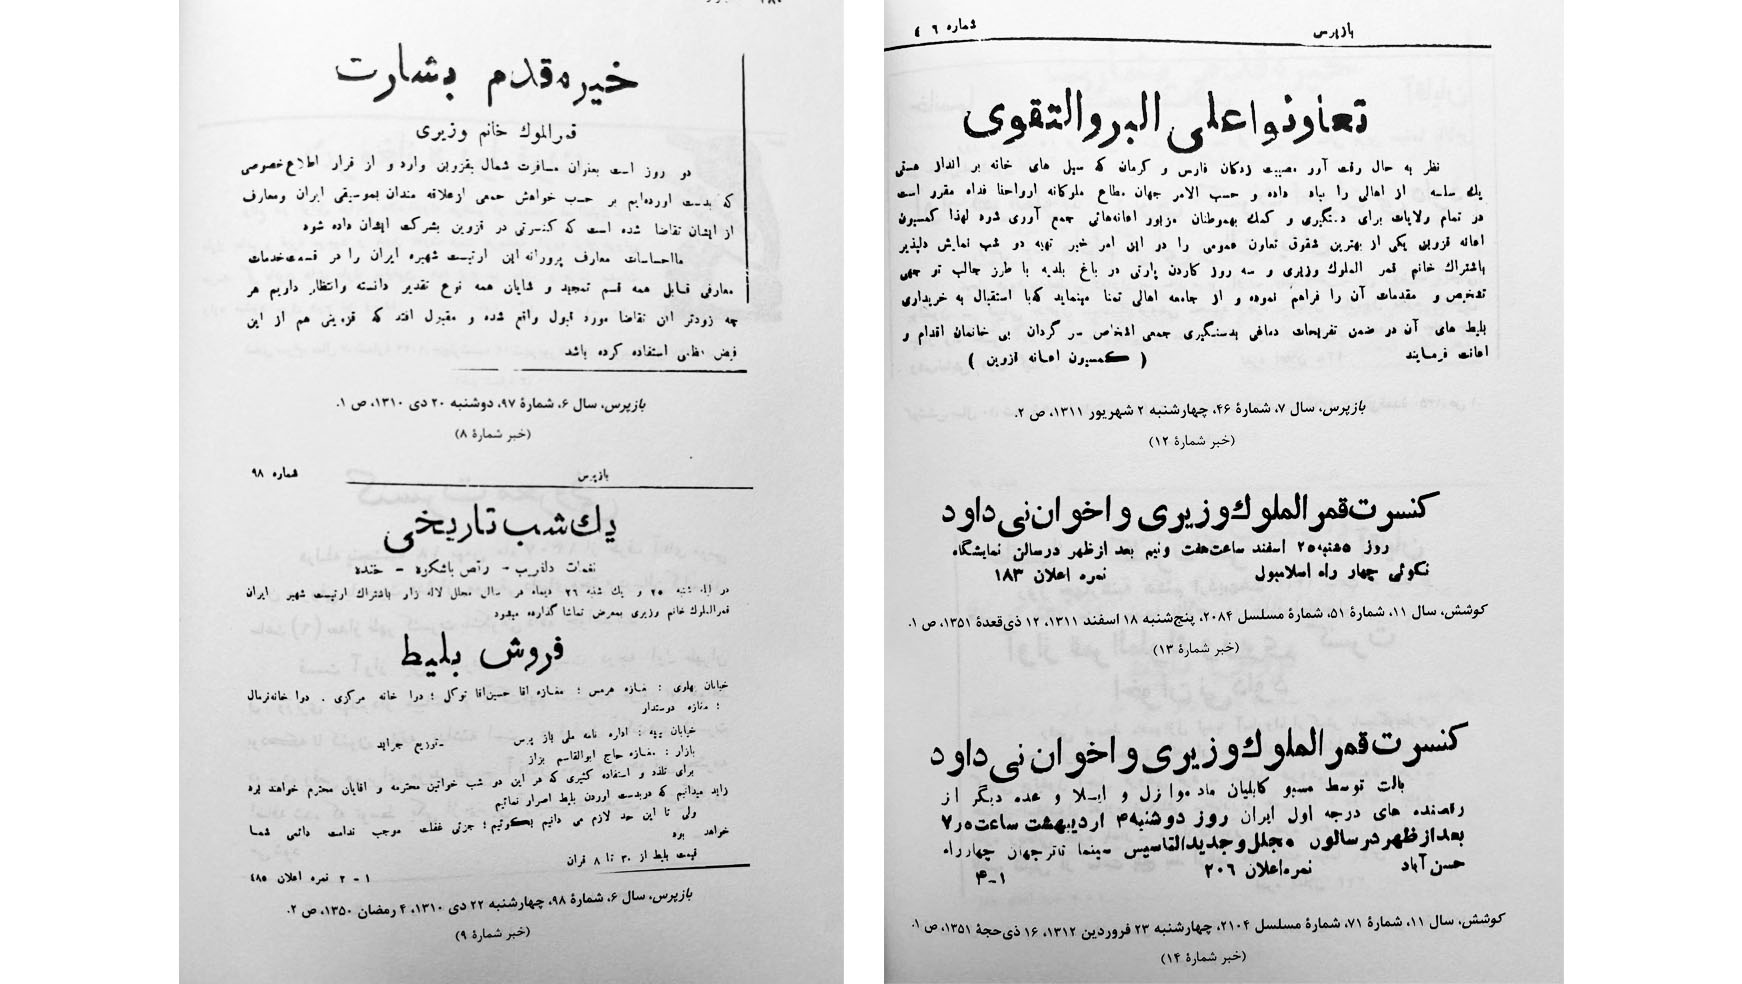 خیره‌قدم بشارت
قمرالملوك خانم وزیری
دو روز است بعنوان مسافرت شمال بقزوین وارد و از قرار اطلاع خصوصی
که بدست آورده‌ایم بر حسب خواهش جمعی ازعلاقه مندان بموسیقی ایران ومعارف
از ایشان تقاضا شده است که کنسرتی در قزوین بشرکت ایشان داده شود
مااحساسات معارف پرورانه این ارتیست شهیره ایران را در قسمت‌خدمات
معارفی قابل همه قسم تمجید و شایان همه نوع تقدیر دانسته وانتظار داریم هر
چه زودتر این تقاضا مورد قبول واقع شده و مقبول افتد که قزوینی هم از این
فیض استفاده کرده باشد
بازپرس، سال ۶، شمارهٔ ۹۷، دوشنبه ۲۰ دی ۱۳۱۰، ص ۱.
(خبر شمارهٔ ۸)
بازپرس شماره ۹۸
یك شب تاریخی
نغمات دلفریب - رقص باشکوه - خنده
شنبه ۲۵ و یك شنبه ۲۶ دیماه در سالن مجلل لاله زار باشتراك ارتیست شهیر ایران
قمرالملوك خانم وزیری بمعرض تماشا گذارده میشود
فروش بلیط
خیابان پهلوی : مغازه هرمس ؛ مغازه آقا حسین‌آقا توکل ؛ دوا خانه مرکزی . دوا خانه‌نرمال
؛ مغازه دوستدار
خیابان : اداره نامه ملی باز پرس - توزیع جراید
بازار : مغازه حاج ابوالقاسم بزاز
برای تلذذ و استفاده کثیری که در این دو شب خواتین محترمه و اقایان محترم خواهند برد
زاید میدانیم که دربدست آوردن بلیط اصرار نمائیم
ولی تا این حد لازم می دانیم بگوئیم ؛ جزئی غفلت موجب ندامت دائمی شما
خواهد بود
قیمت بلیط از ۳۰ تا ۸ قران
۱ - ۲ نمره اعلان ۴۸۵
بازپرس، سال ۶، شمارهٔ ۹۸، چهارشنبه ۲۲ دی ۱۳۱۰، ۴ رمضان ۱۳۵۰، ص ۲.
(خبر شمارهٔ ۹)
بازپرس شماره ٤٦
تعاونوا علی البر والتقوی
نظر به حال رقت آور مصیبت زدگان فارس و کرمان که سیل های خانه بر انداز هستی
یك سلسه از اهالی را بباد داده و حسب الامر جهان مطاع ملوکانه ارواحنا فداه مقرر است
در تمام ولایات برای دستگیری و کمك بهموطنان مزبور اعانه‌هائی جمع آوری شود لهذا کمسیون
اعانه قزوین یکی از بهترین شقوق تعاون عمومی را در این امر خیر تهیه دو شب نمایش دلپذیر
باشتراك خانم قمر الملوك وزیری و سه روز گاردن پارتی در باغ بلدیه با طرز جالب تو جهی
تشخیص و مقدمات آن را فراهم نموده و از جامعه اهالی تمنا مینماید که‌با استقبال به خریداری
بلیط های آن در ضمن تفریحات دماغی بدستگیری جمعی اشخاص سر گردان بی خانمان اقدام و
اعانت فرمایند ( کمسیون اعانه قزوین )
بازپرس، سال ۷، شمارهٔ ۴۶، چهارشنبه ۲ شهریور ۱۳۱۱، ص ۲.
(خبر شمارهٔ ۱۲)
کنسرت قمر الملوك وزیری و اخوان نی داود
روز ۵شنبه۲۵ اسفند ساعت‌هفت ونیم بعد ازظهر درسالن نمایشگاه
نکوئی چهار راه اسلامبول نمره اعلان ۱۸۳
کوشش، سال ۱۱، شمارهٔ ۵۱، شمارهٔ مسلسل ۲۰۸۴، پنج‌شنبه ۱۸ اسفند ۱۳۱۱، ۱۲ ذی‌قعدهٔ ۱۳۵۱، ص ۱.
(خبر شمارهٔ ۱۳)
کنسرت قمر الملوك وزیری و اخوان نی داود
بالت توسط مسیو کابلیان مادموازل و ایملا و عده دیگر از
رقصنده های درجه اول ایران روز دوشنبه۴ اردیبهشت ساعت‌۷
بعدازظهر درسالون مجلل‌وجدیدالتاسیس سینما تاترجهان چهارراه
حسن‌آباد نمره‌اعلان ۲۰۶ ۱-۴
کوشش، سال ۱۱، شمارهٔ ۷۱، شمارهٔ مسلسل ۲۱۰۴، چهارشنبه ۲۳ فروردین ۱۳۱۲، ۱۶ ذی‌حجهٔ ۱۳۵۱، ص ۱.
(خبر شمارهٔ ۱۴)